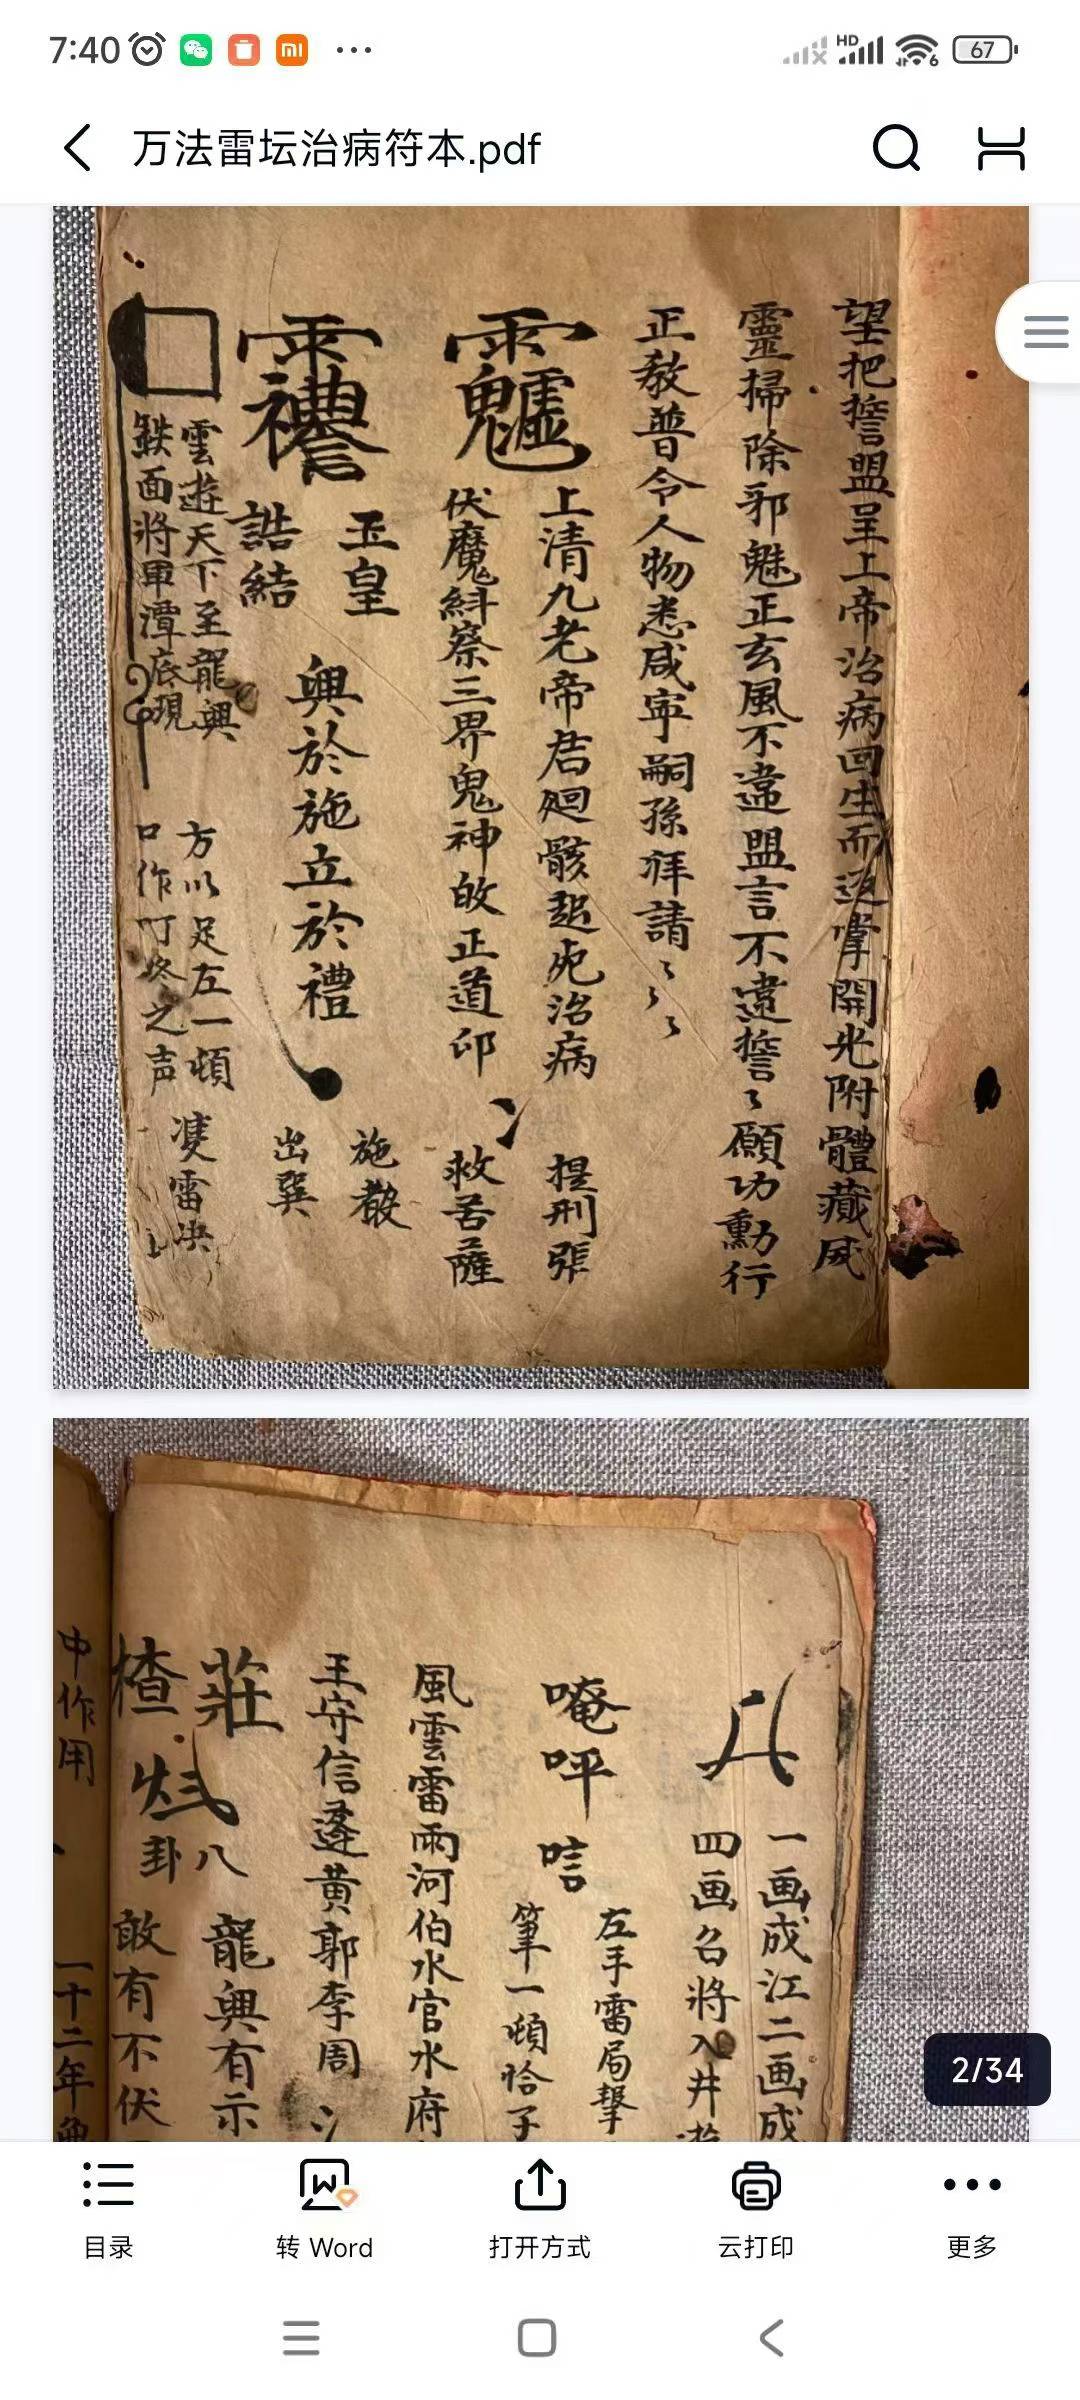 7:40
HD
6
67
万法雷坛治病符本.pdf
望把誓盟呈上帝治病回生而返掌開光附體藏威
靈掃除邪魅正玄風不違盟言不違誓々願功勳行
正教普令人物悉咸寧嗣孫拜請
上清九老帝君廻骸起死治病
提刑張
伏魔糾察三界鬼神敀正道印
救苦薩
玉皇
誥結
興於施立於禮
施教
出巽
雲遊天下至龍興
鉄面將軍潭底現
方以足左一頓
口作叮咚之声
雙雷决
一画成江二画成
四画召將入井
唵呯唁
左手雷局擊
筆一頓恰子
風雲雷雨河伯水官水府
王守信蓬黄郭李周
莊
楂
八
卦
龍興有示
敢有不伏
中作用
一十二年
2/34
目录
转 Word
打开方式
云打印
更多